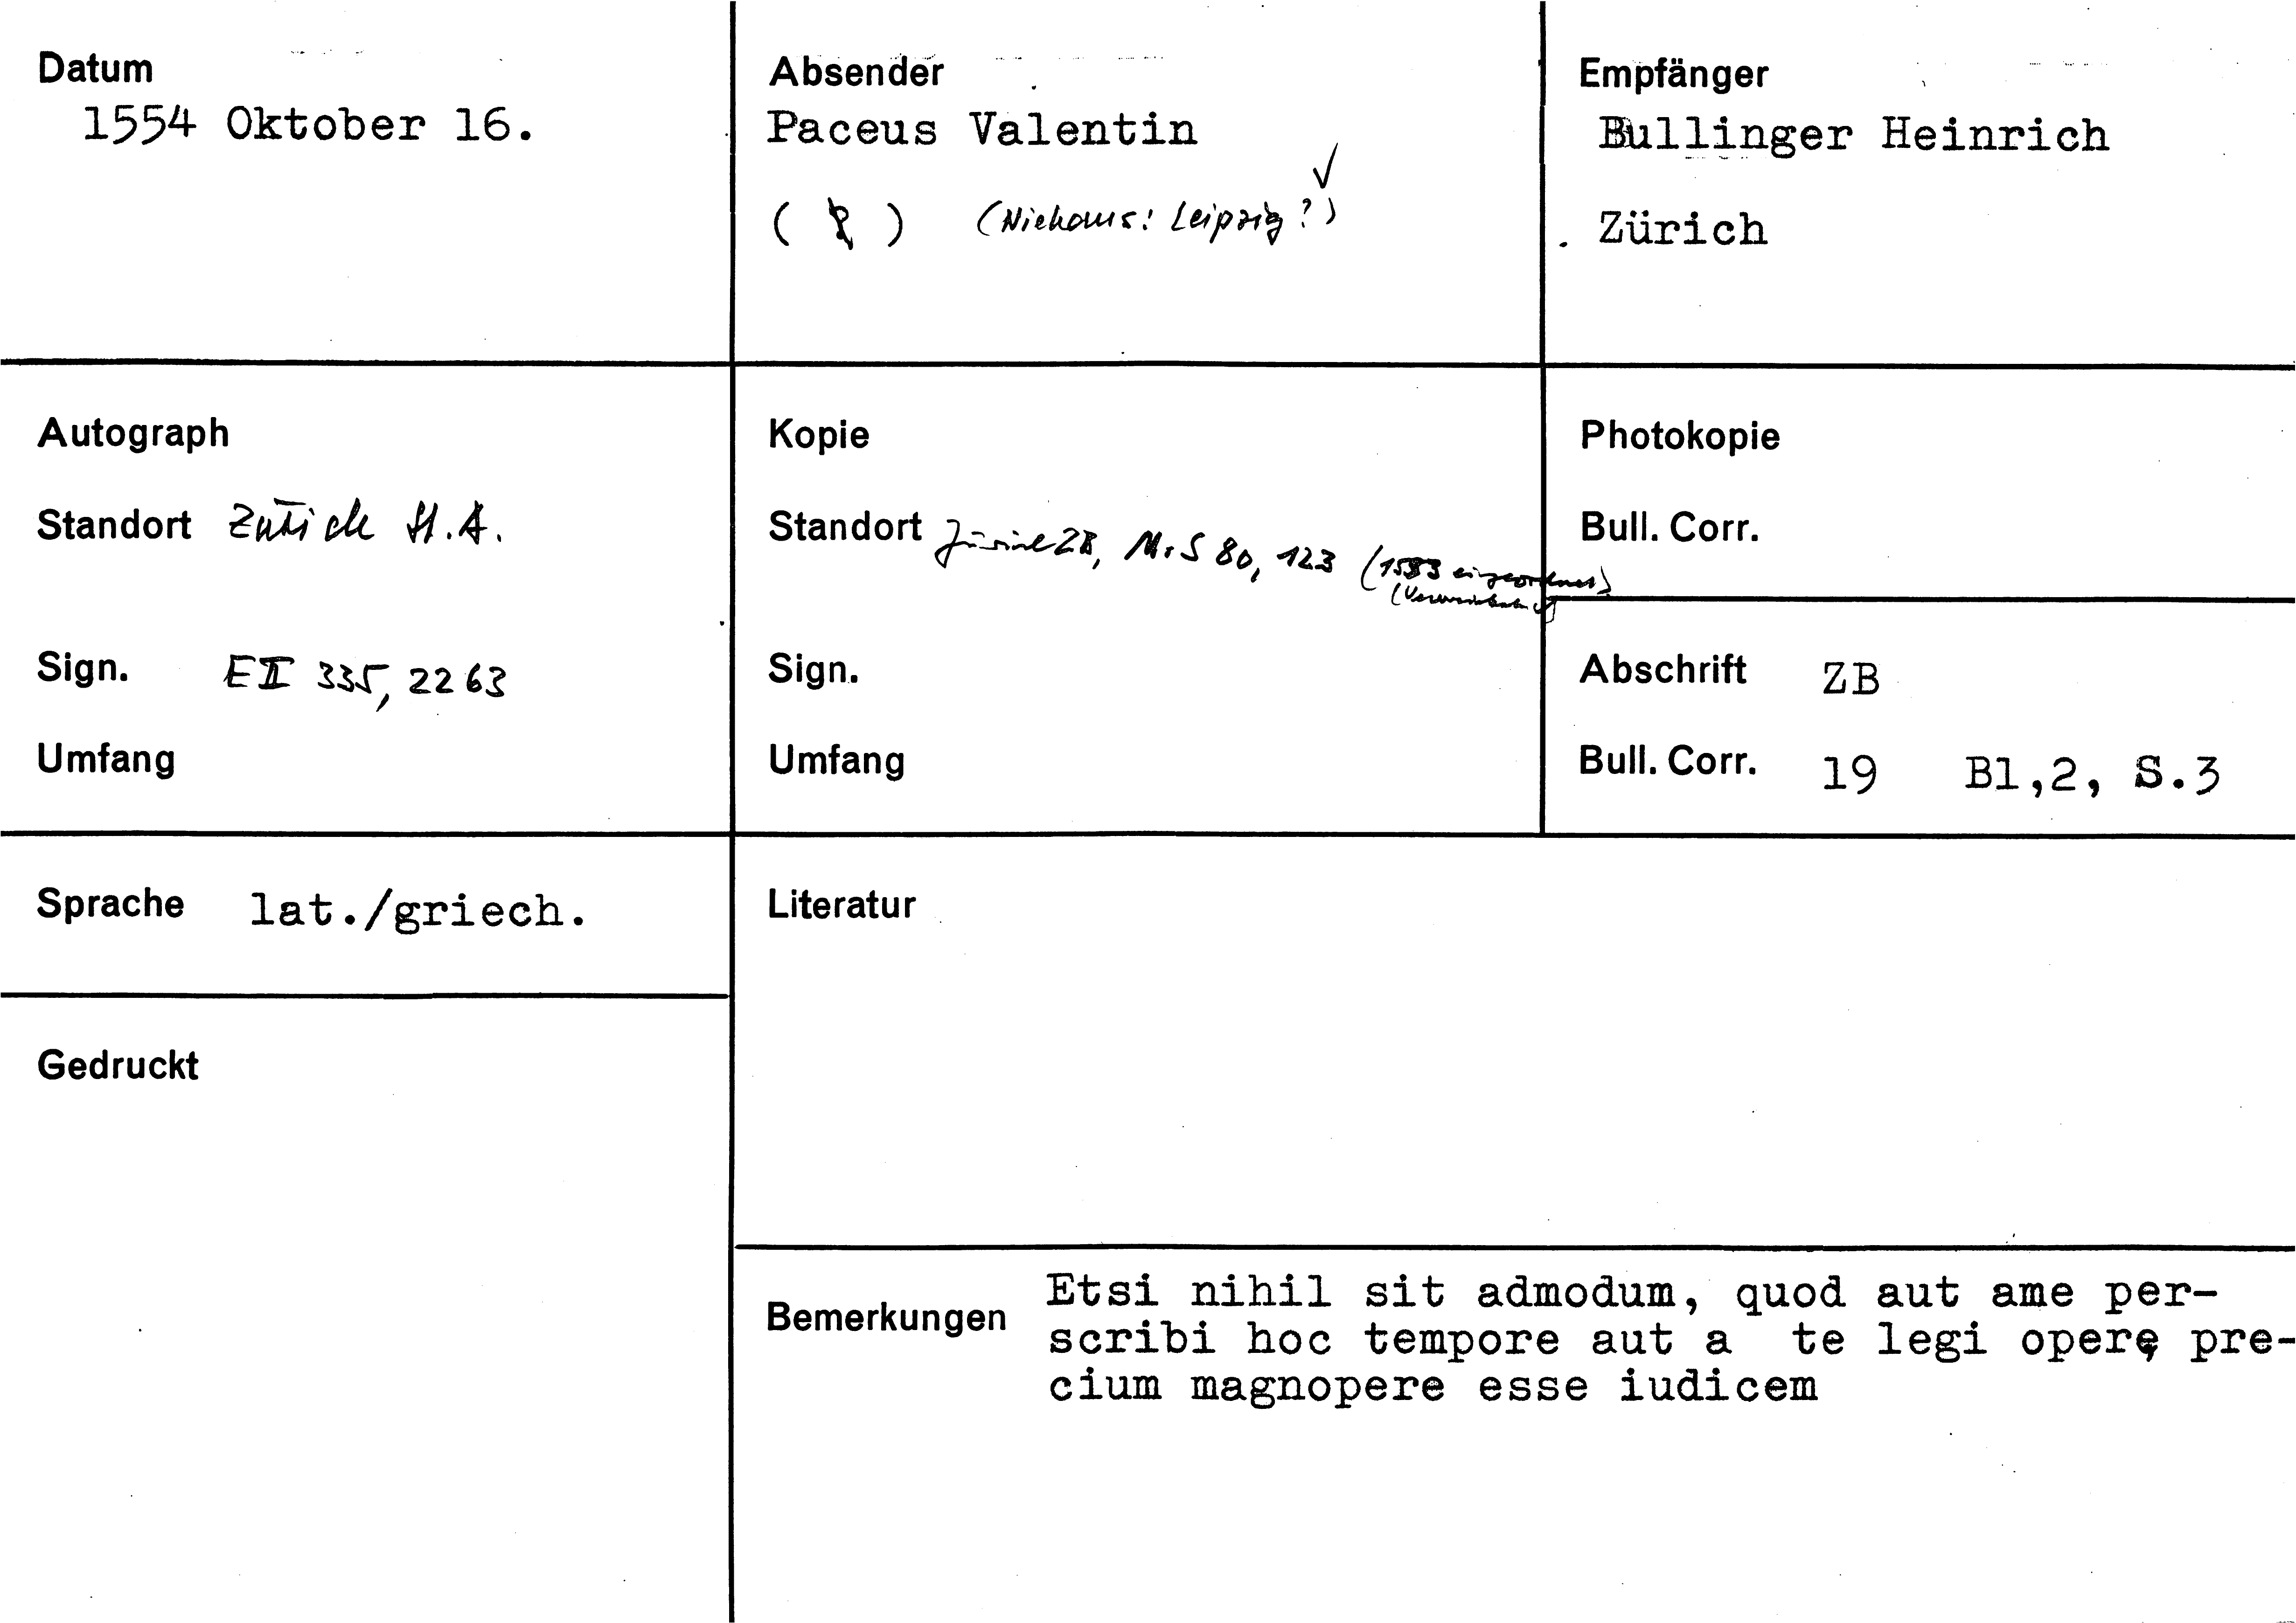 Datum
1554 Oktober 16.
Absender
Paceus Valentin
( ) (Niehaus: Leipzig?) ✓
Empfänger
Bullinger Heinrich
Zürich
Autograph
Standort Zürich St.A.
Sign. E II 335, 2263
Umfang
Kopie
Standort Zürich ZB, Ms S 80, 123 (1553 eingeordnet)
Sign.
Umfang
Photokopie
Bull. Corr.
Abschrift ZB
Bull. Corr. 19 Bl,2, S.3
Sprache lat./griech.
Gedruckt
Literatur
Bemerkungen
Etsi nihil sit admodum, quod aut ame per-
scribi hoc tempore aut a te legi operę pre-
cium magnopere esse iudicem